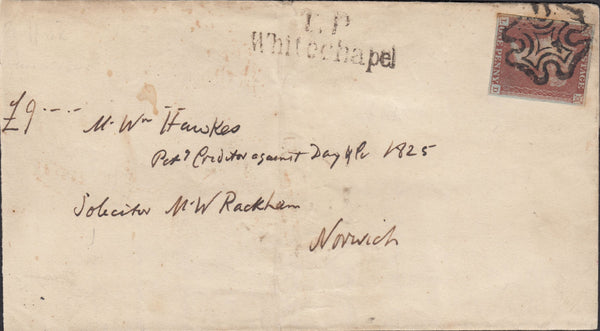 T.P
Whitechapel
£9 ----
Mr Wm Hawkes
Creditor against Day & Co 1825
Solicitor Mr W Rackham
Norwich
PENNY